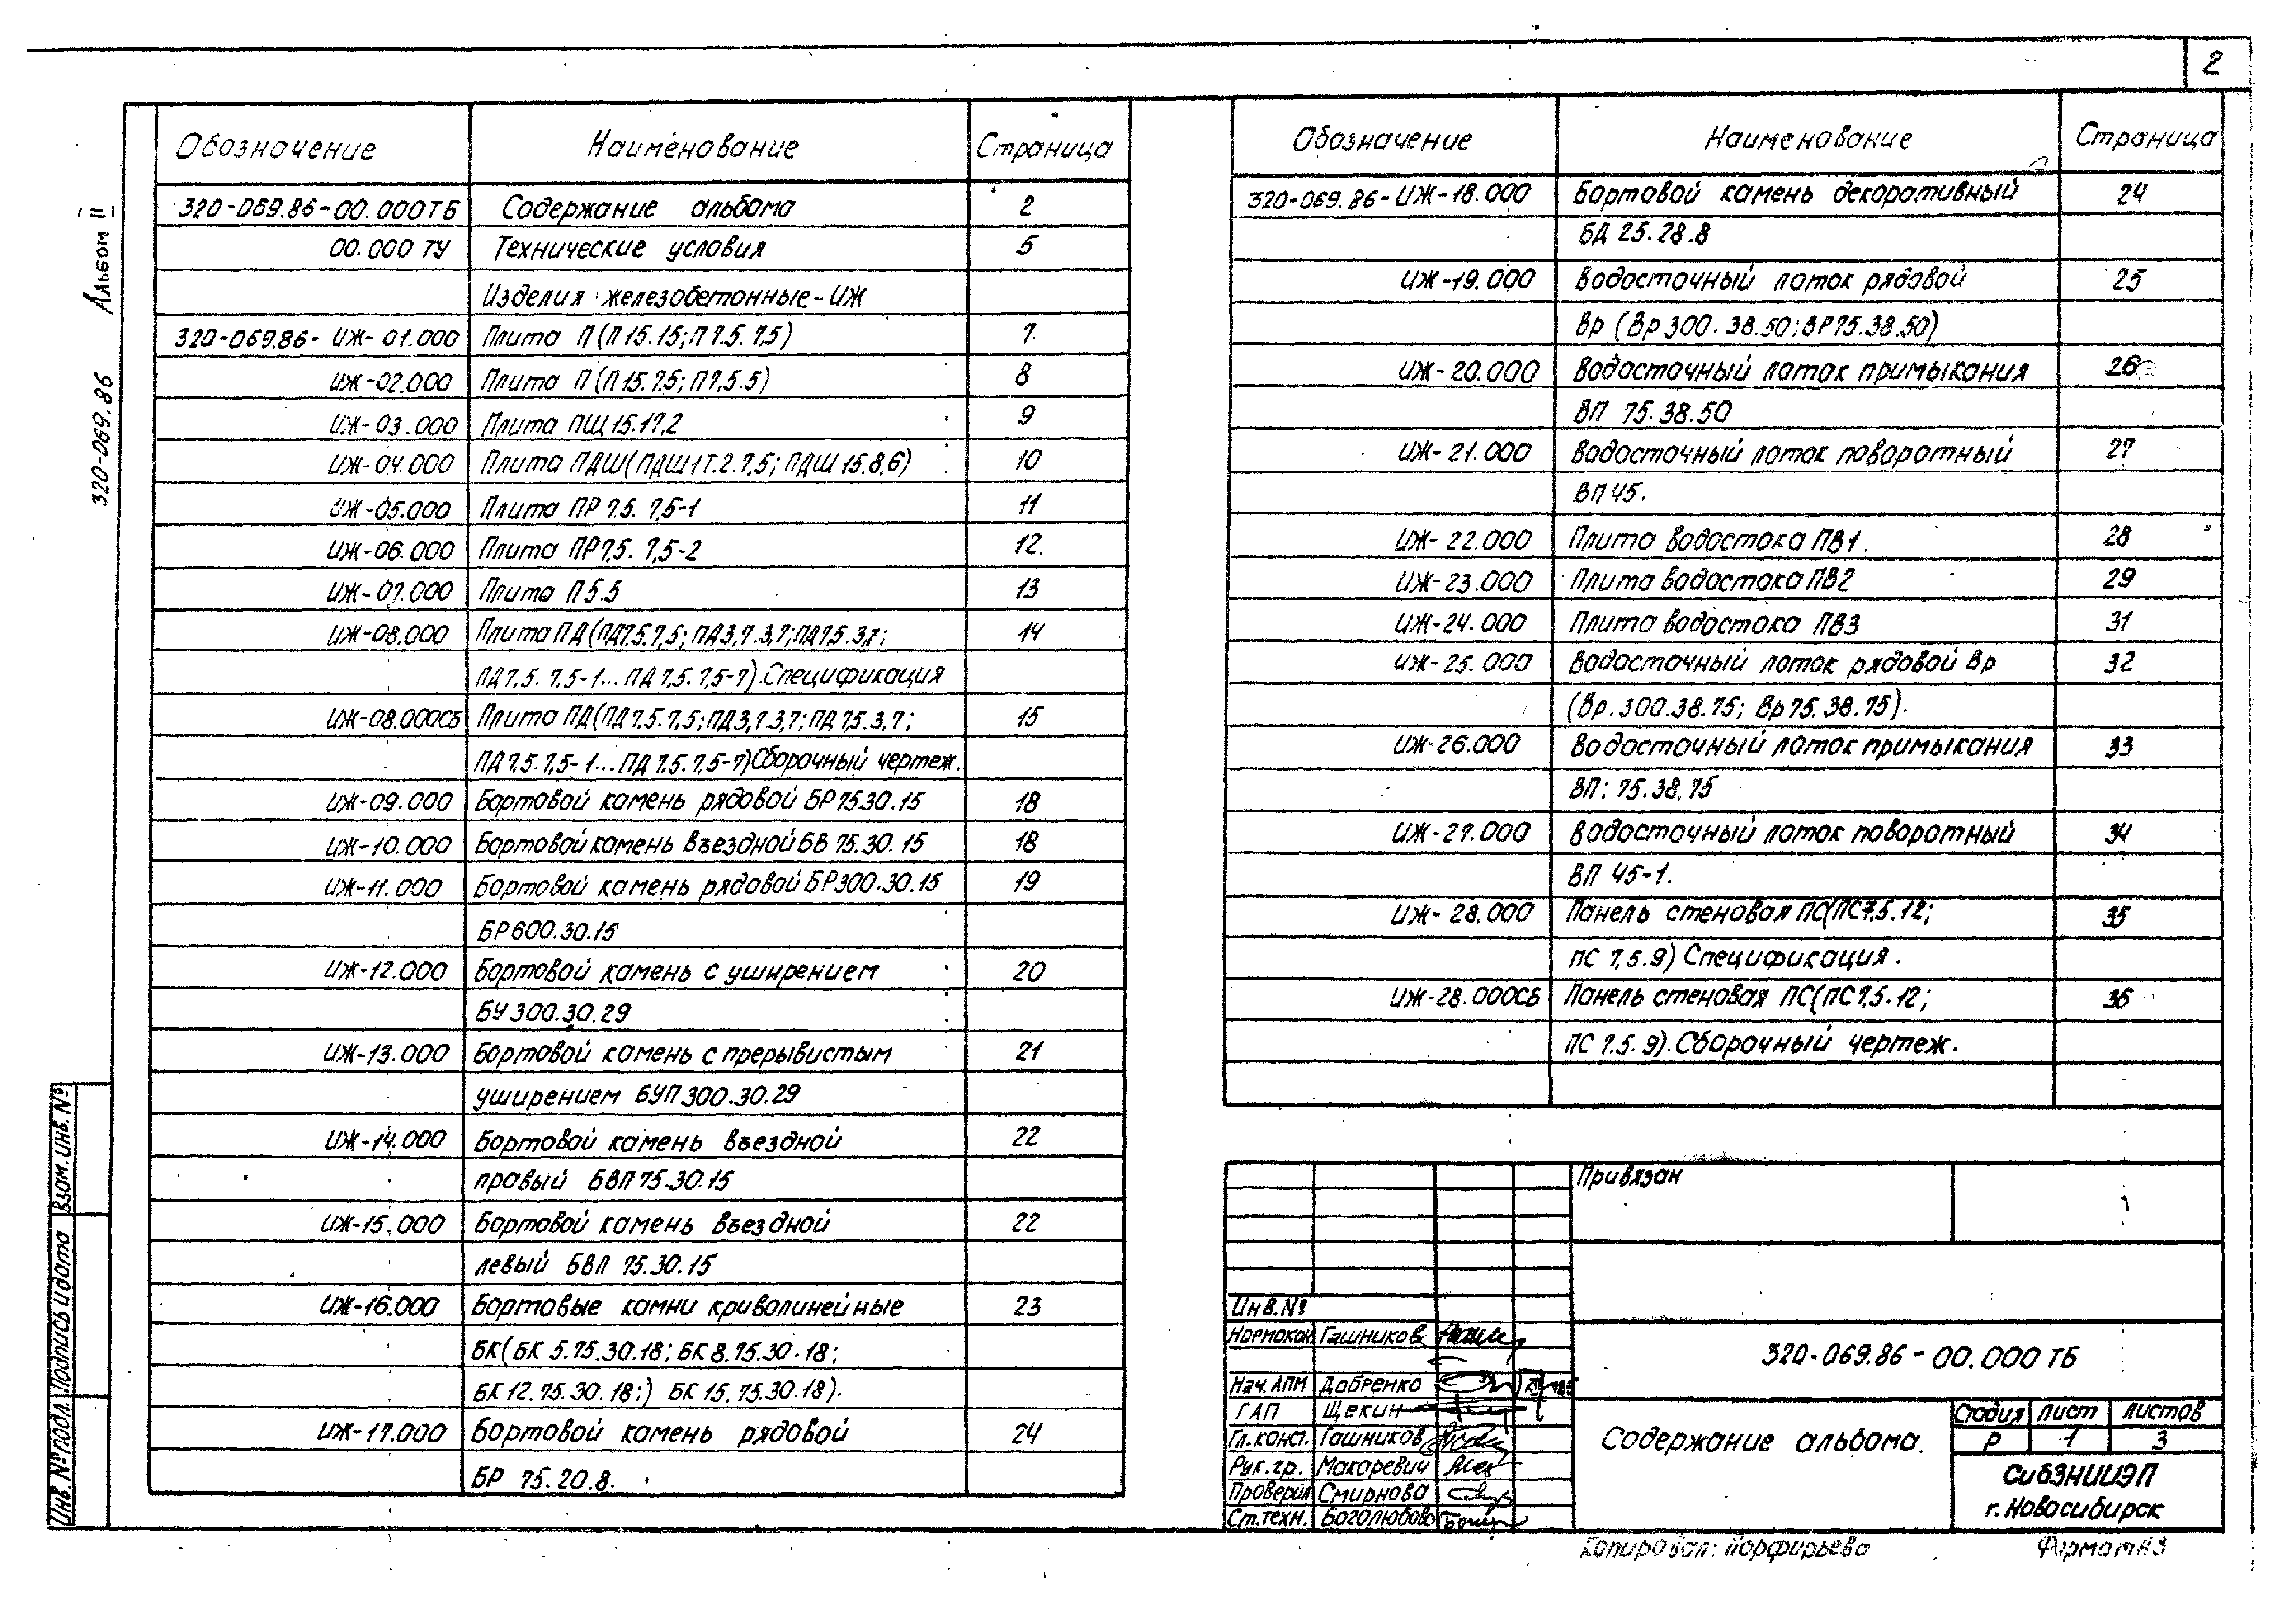 2
320-069.86 Альбом II
Обозначение Наименование Страница
320-069.86-00.000ТБ Содержание альбома 2
00.000 ТУ Технические условия 5
Изделия железобетонные-ИЖ
320-069.86- ИЖ-01.000 Плита П (П 15.15; П 7.5. 7,5) 7
ИЖ-02.000 Плита П (П 15.7.5; П 7,5.5) 8
ИЖ-03.000 Плита ПЩ 15.17,2 9
ИЖ-04.000 Плита ПДШ(ПДШ 17.2.7,5; ПДШ 15.8,6) 10
ИЖ-05.000 Плита ПР 7.5. 7,5-1 11
ИЖ-06.000 Плита ПР 7,5. 7,5-2 12.
ИЖ-07.000 Плита П 5.5 13
ИЖ-08.000 Плита ПД (ПД7.5.7,5; ПД3,7.3,7; ПД7,5.3,7; 14
ПД 7,5. 7,5-1... ПД 7,5. 7,5-7). Спецификация
ИЖ-08.000СБ Плита ПД (ПД 7.5.7,5; ПД3,7.3,7; ПД 7,5.3,7; 15
ПД 7,5.7,5-1...ПД 7.5. 7,5-7) Сборочный чертеж.
ИЖ-09.000 Бортовой камень рядовой БР 75.30.15 18
ИЖ-10.000 Бортовой камень въездной БВ 75.30.15 18
ИЖ-11.000 Бортовой камень рядовой БР300.30.15 19
БР 600.30.15
ИЖ-12.000 Бортовой камень с уширением 20
БУ 300.30.29
ИЖ-13.000 Бортовой камень с прерывистым 21
уширением БУП 300.30.29
ИЖ-14.000 Бортовой камень въездной 22
правый БВП 75.30.15
ИЖ-15.000 Бортовой камень въездной 22
левый БВЛ 75.30.15
ИЖ-16.000 Бортовые камни криволинейные 23
БК (БК 5.75.30.18; БК 8.75.30.18;
БК 12.75.30.18;) БК 15.75.30.18).
ИЖ-17.000 Бортовой камень рядовой 24
БР 75.20.8.
Обозначение Наименование Страница
320-069.86-ИЖ-18.000 Бортовой камень декоративный 24
БД 25.28.8
ИЖ-19.000 Водосточный лоток рядовой 25
Вр (Вр 300.38.50; ВР75.38.50)
ИЖ-20.000 Водосточный лоток примыкания 26
ВП 75.38.50
ИЖ-21.000 Водосточный лоток поворотный 27
ВП 45.
ИЖ-22.000 Плита водостока ПВ1. 28
ИЖ-23.000 Плита водостока ПВ2 29
ИЖ-24.000 Плита водостока ПВ3 31
ИЖ-25.000 Водосточный лоток рядовой Вр 32
(Вр.300.38.75; Вр 75.38.75).
ИЖ-26.000 Водосточный лоток примыкания 33
ВП: 75.38.75
ИЖ-27.000 Водосточный лоток поворотный 34
ВП 45-1.
ИЖ-28.000 Панель стеновая ПС(ПС7,5.12; 35
ПС 7,5.9) Спецификация.
ИЖ-28.000СБ Панель стеновая ПС(ПС 7,5.12; 36
ПС 7.5.9). Сборочный чертеж.
Привязан
Инв.№
Нормокон. Гашников
320-069.86-00.000 ТБ
Нач.АПМ Добренко
ГАП Щекин
Гл.конст. Гашников
Рук.гр. Макаревич
Проверил Смирнова
Ст.техн. Боголюбова
Содержание альбома.
Стадия Лист Листов
Р 1 3
СибЗНИИЭП
г. Новосибирск
Копировал: Порфирьева Формат А3
Инв.№подл. Подпись и дата Взам.инв.№